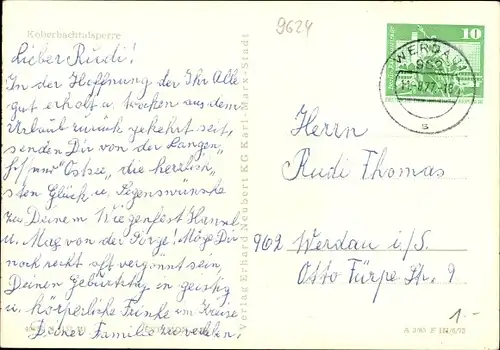 Koberbachtalsperre
Lieber Rudi!
In der Hoffnung der Ihr Alle
gut erholt u. trocken aus dem
Urlaub zurück gekehrt seit,
senden Dir von der Langen
Ostsee, die herzlich
sten Glück u. Segenswünske
zu Deinem Wiegenfest Hansel
u. Mag von der Sorge! Möge Dir
noch recht oft vergönnt sein
Deinen Geburtstag in geistig
u. körperliche Frinke im Kreise
Deiner Familie zu verleben.
Verlag Erhard Neubert KG Karl-Marx-Stadt
9624
10
WERDAU
962
Herrn
Rudi Thomas
962 Werdau i/S.
Otto Türpe Str. 9
1.-